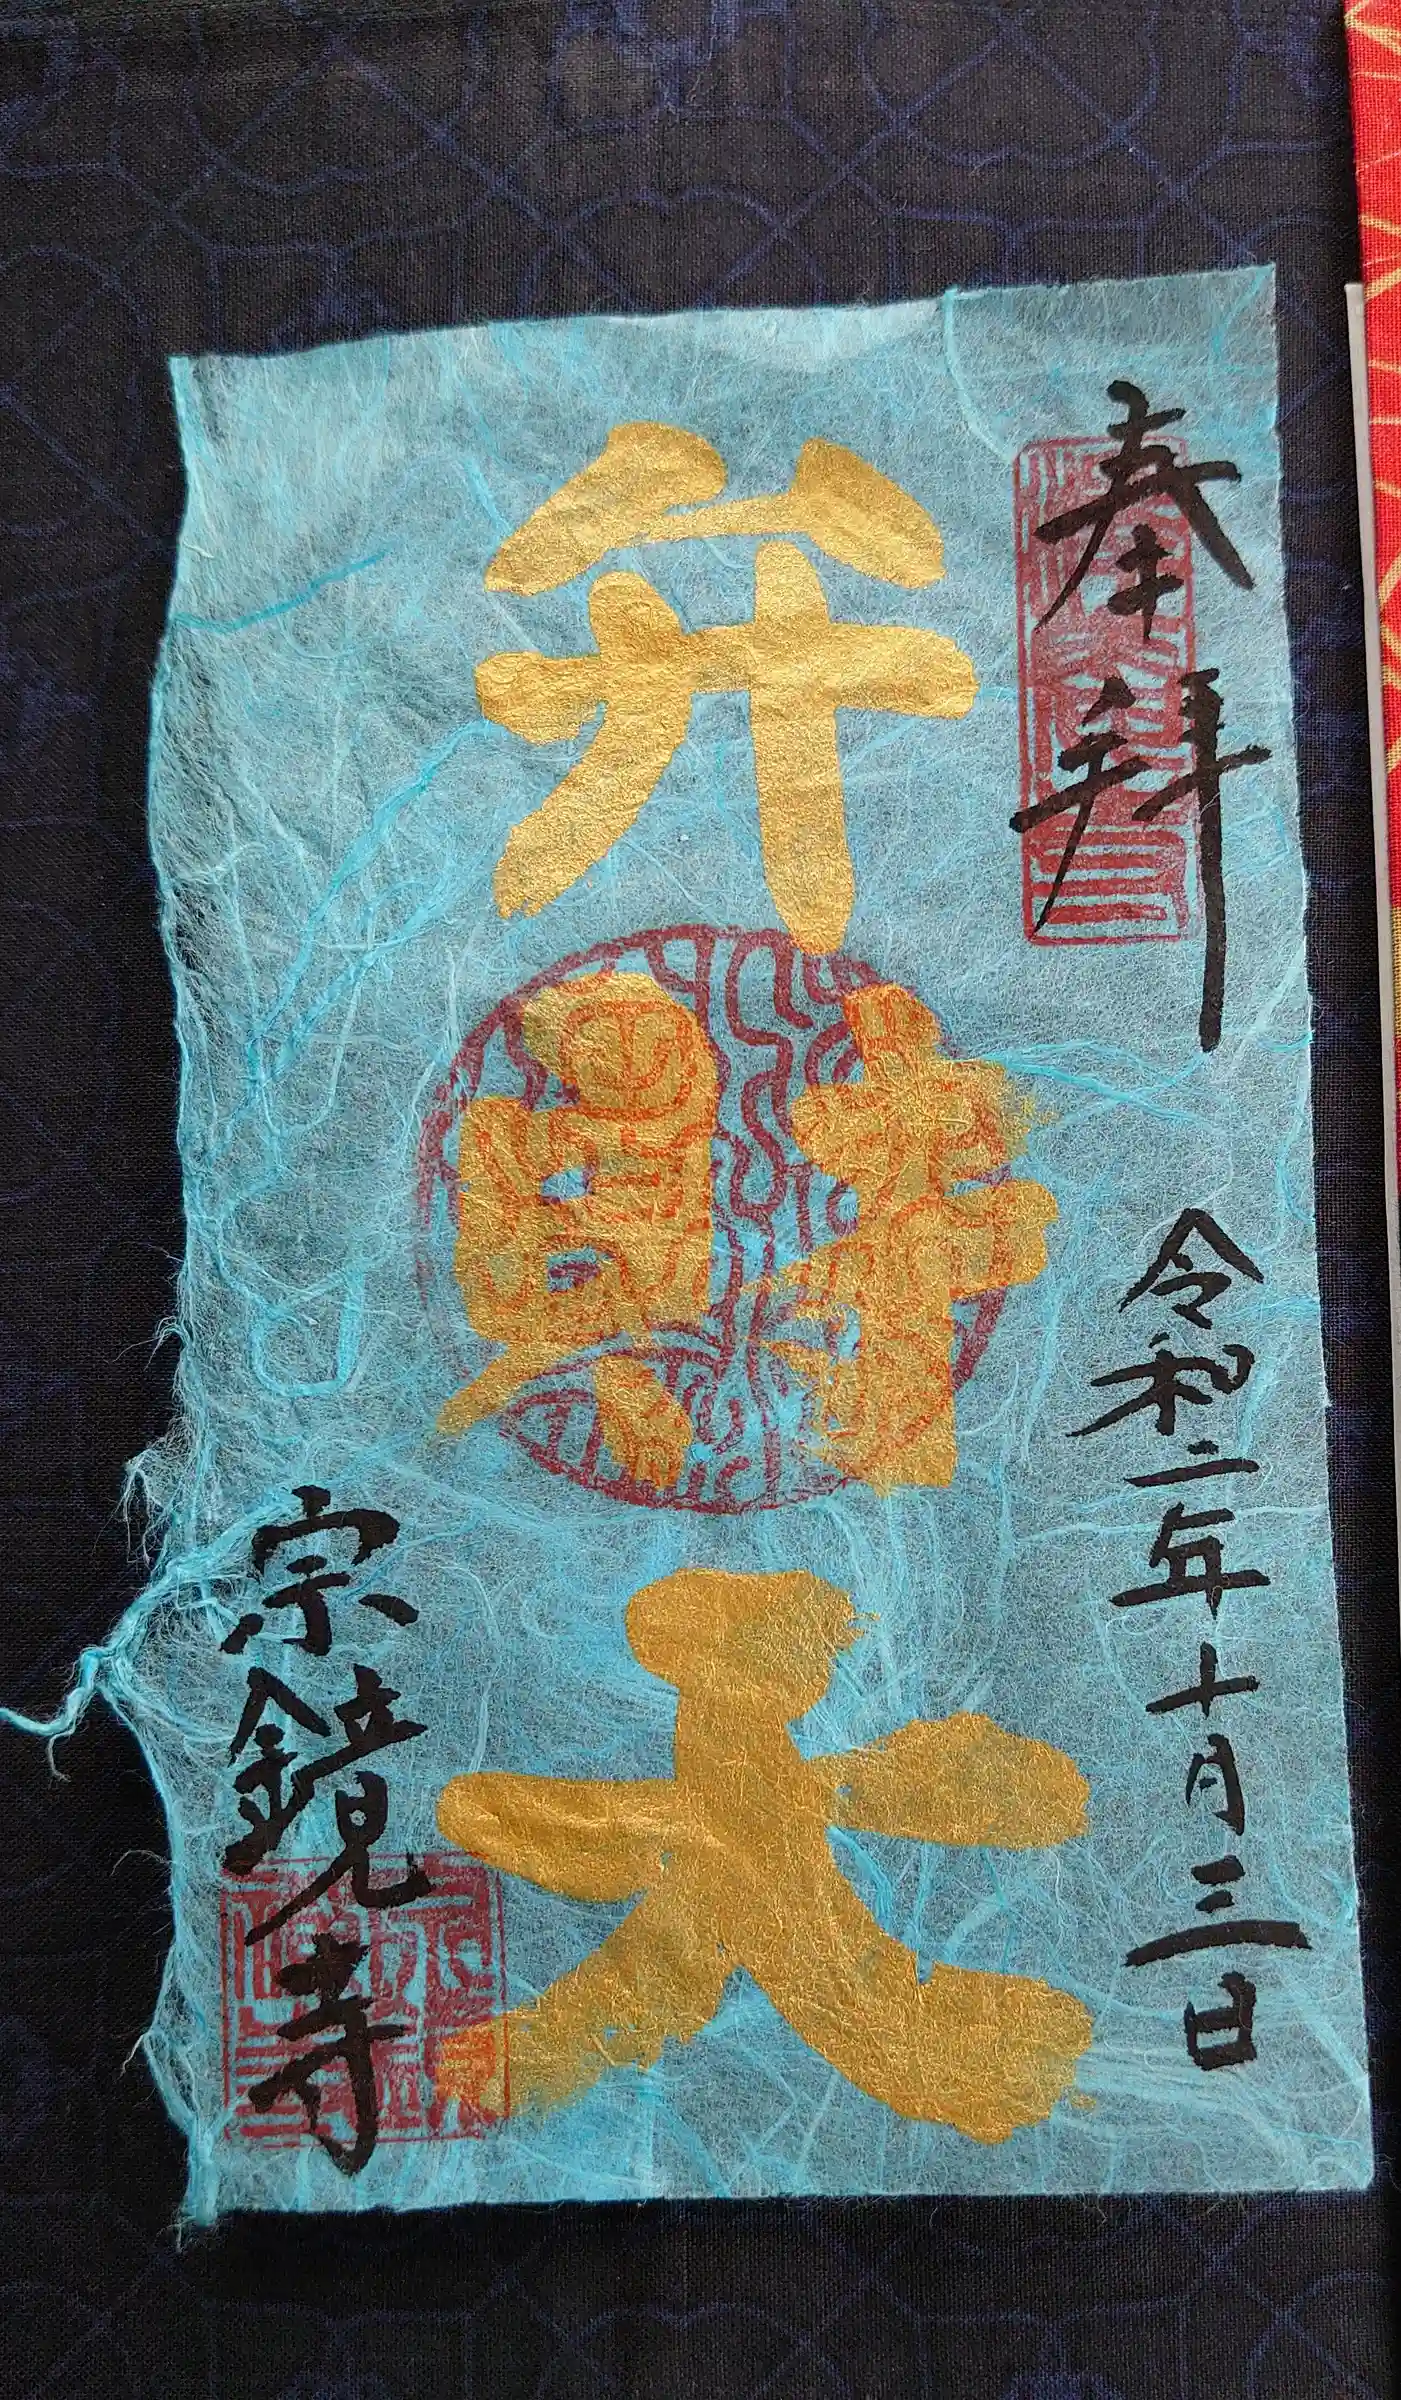 奉拝
令和二年十月三日
弁財天
宗鏡寺